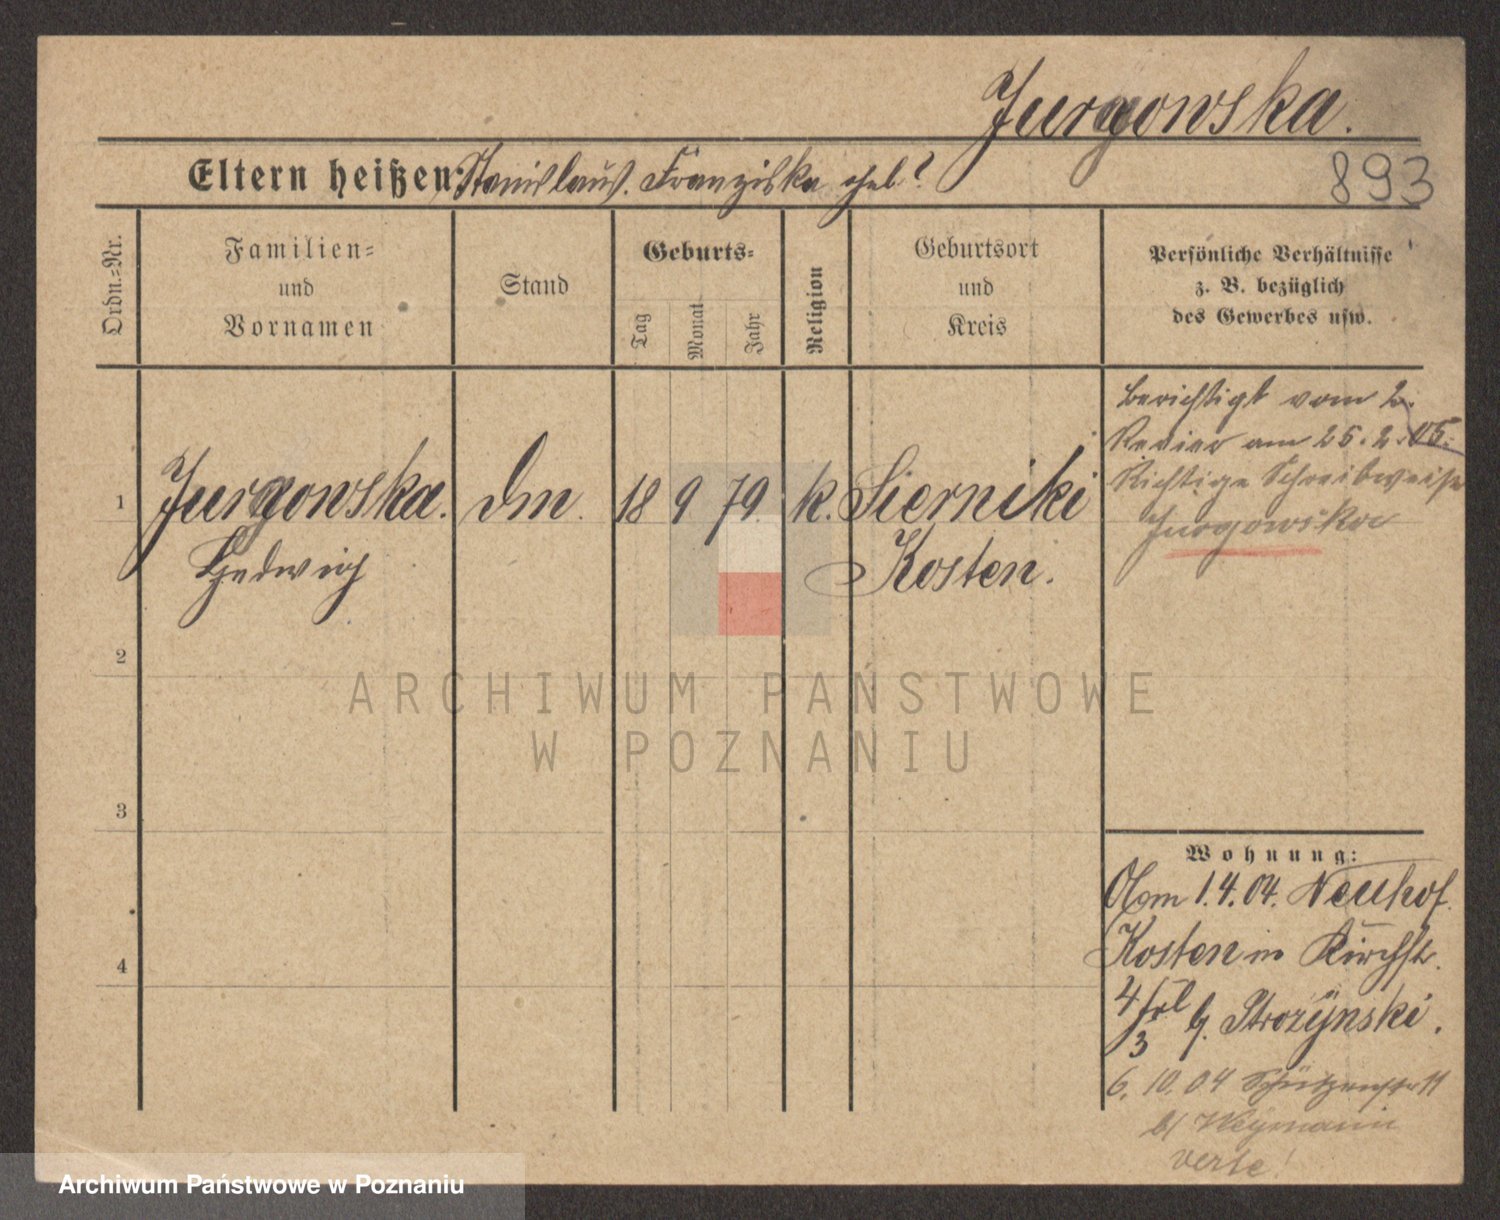 Jurgowska.
893
Eltern heißen: Stanislaus. Franziska geb.?
Ordn.=Nr.
Familien=
und
Vornamen
Stand
Geburts=
Tag
Monat
Jahr
Religion
Geburtsort
und
Kreis
Persönliche Verhältnisse
z. B. bezüglich
des Gewerbes usw.
1
Jurgowska.
Hedwig
Dm.
18
9
79.
k.
Sierniki
Kosten.
Berichtigt vom 2.
Revier am 25.2.05.
Richtige Schreibweise
Jurgowska
2
3
4
Wohnung:
Am 1.4.04. Neuhof.
Kosten in Kirchstr.
4
3
b. Strozÿnski.
6.10.04 Schützenstr 11
b/ Weÿmann
verte!
ARCHIWUM PAŃSTWOWE
W POZNANIU
Archiwum Państwowe w Poznaniu